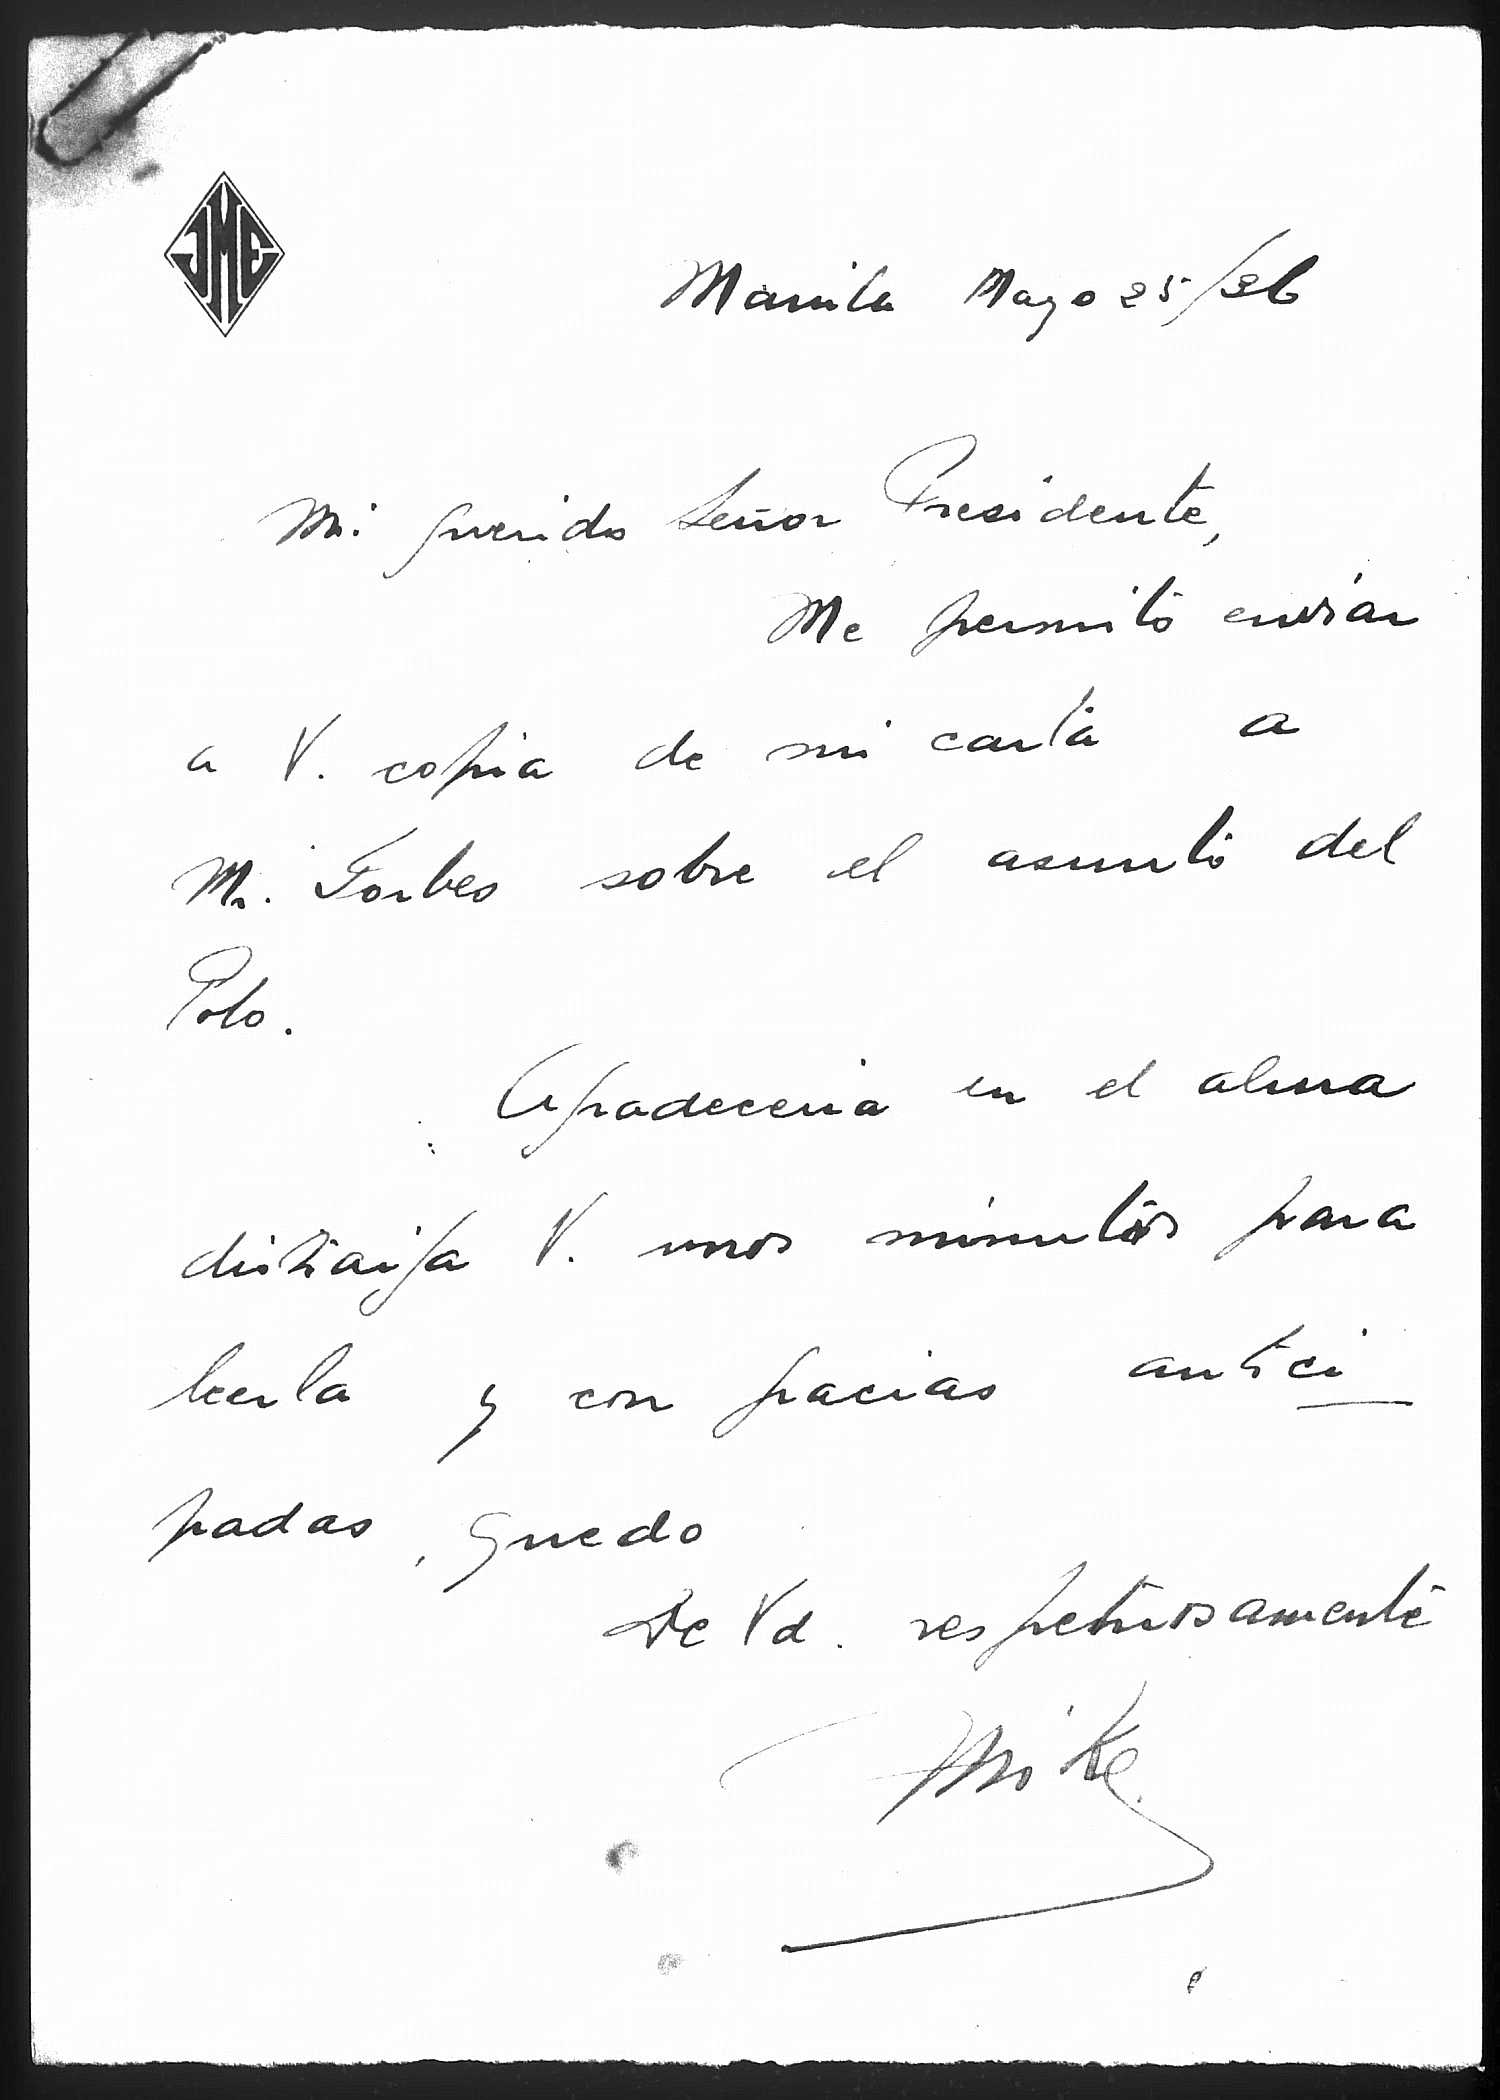 JME
Manila Mayo 25/36
Mi querido Señor Presidente,
Me permito enviar
a V. copia de mi carta a
Mr. Forbes sobre el asunto del
Polo.
Agradeceria en el alma
distraiga V. unos minutos para
leerla y con gracias antici
padas, quedo
De Vd. respetuosamente
Mike